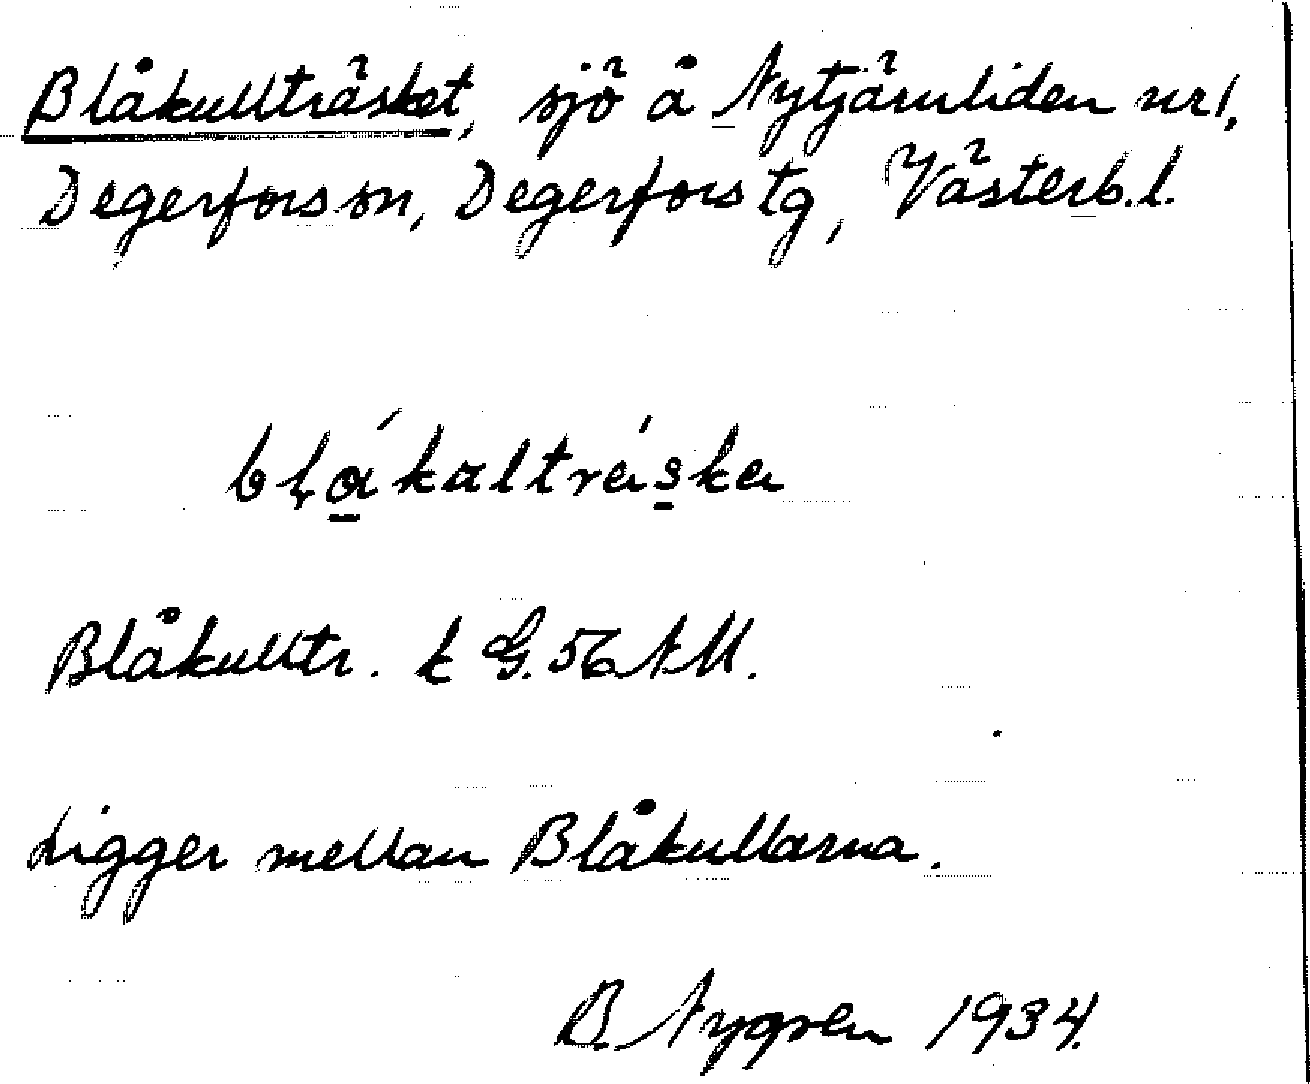 Blåkullträsket, sjö å Nytjärnliden nr 1,
Degerfors sn, Degerfors tg, Västerb. l.
blåkaltréska
Blåkulltr. k G. 56 NM.
Ligger mellan Blåkullarna.
B. Nygren 1934.